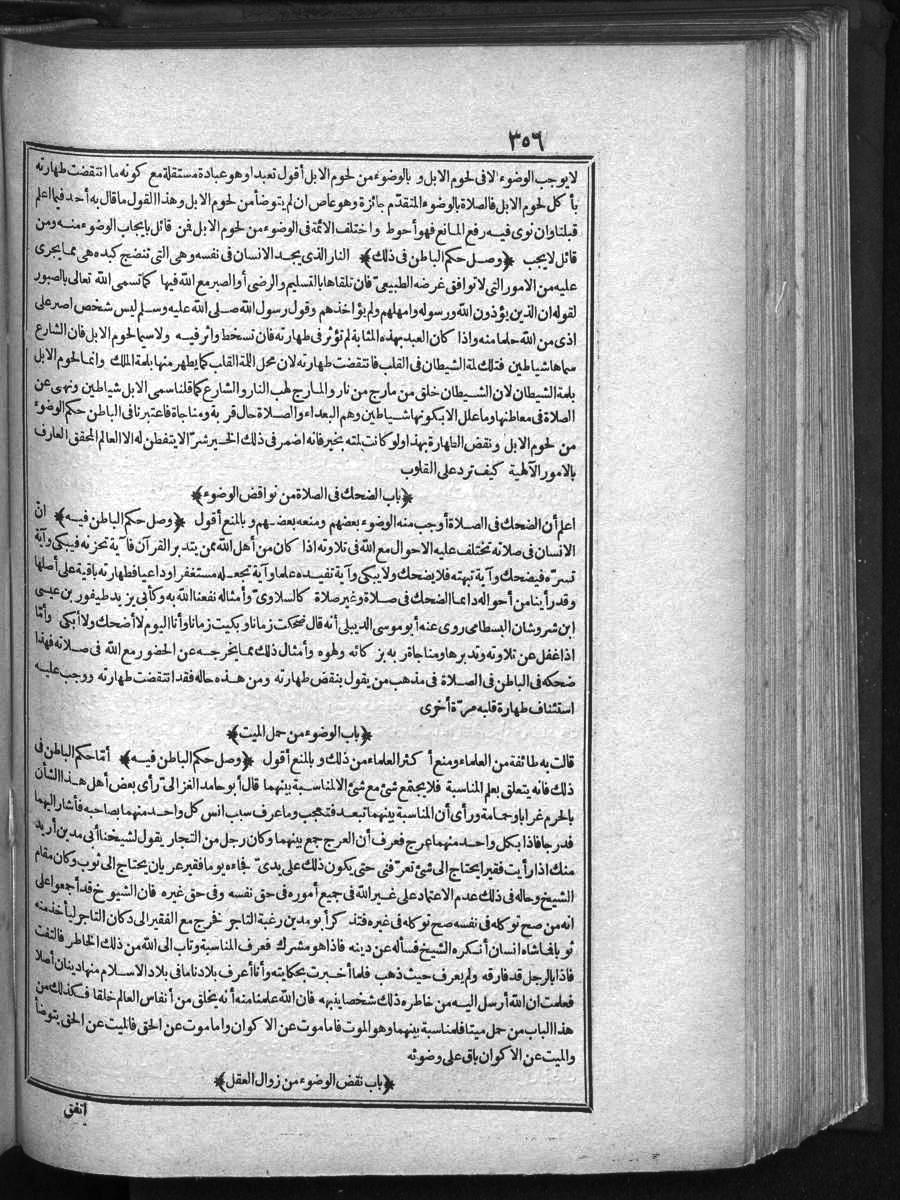 ٣٥٦
لا يوجب الوضوء لا في لحوم الابل و بالوضوء من لحوم الابل أقول تعبدا وهو عبادة مستقلة مع كونه ما انتقضت طهارته
بأ كل لحوم الابل فالصلاة بالوضوء المتقدّم جائزة وهو عاص ان لم يتوضأ من لحوم الابل وهذا القول ما قال به أحد فيما اعلم
قبلنا وان نوى فيه رفع المانع فهو أحوط واختلف الائمة في الوضوء من لحوم الابل فمن قائل بايجاب الوضوء منه ومن
قائل لا يجب ﴿وصل حكم الباطن في ذلك﴾ النار الذي يجد الانسان في نفسه وهى التى تنضج كبده هى مما يجرى
عليه من الامور التى لا توافق غرضه الطبيعىّ فان تلقاها بالتسليم والرضى أو الصبر مع الله فيها كما تسمى الله تعالى بالصبور
لقوله ان الذين يؤذون الله ورسوله وامهلهم ولم يؤاخذهم وقول رسول الله صلى الله عليه وسلم ليس شخص اصبر على
اذى من الله حلما منه واذا كان العبد بهذه المثابة لم تؤثر في طهارته فان تسخط واثر فيه ولا سيما لحوم الابل فان الشارع
سماها شياطين فتلك لمة الشيطان في القلب فانتقضت طهارته لان محل اللمة القلب كما يطهر منها بلمة الملك وانما لحوم الابل
بلمة الشيطان لان الشيطان خلق من مارج من نار والمارج لهب النار والشارع كما قلنا سمى الابل شياطين ونهى عن
الصلاة في معاطنها وما علل الا بكونها شياطين وهم البعداء والصلاة حال قربة ومناجاة فاعتبرنا في الباطن حكم الوضوء
من لحوم الابل ونقض الطهارة بهذا ولو كانت لمته بخير فانه اضمر في ذلك الخير شرّ الا يتفطن له الا العالم المحقق العارف
بالامور الآلهية كيف ترد على القلوب
﴿باب الضحك في الصلاة من نواقض الوضوء﴾
اعلم أن الضحك في الصلاة أوجب منه الوضوء بعضهم ومنعه بعضهم و بالمنع أقول ﴿وصل حكم الباطن فيه﴾ انّ
الانسان في صلاته تختلف عليه الاحوال مع الله في تلاوته اذا كان من أهل الله ممن يتدبر القرآن فآية تحزنه فيبكى وآية
تسرّه فيضحك وآية تبهته فلا يضحك ولا يبكى وآية تفيده علما وآية تجعله مستغفرا وداعيا فطهارته باقية على أصلها
وقد رأينا من أحواله دائما الضحك في صلاة وغير صلاة كالسلاوىّ وأمثاله نفعنا الله به وكأبى يزيد طيفور بن عيسى
ابن شروشان البسطامى روى عنه أبو موسى الديبلى أنه قال ضحكت زمانا وبكيت زمانا وأنا اليوم لا أضحك ولا أبكى وأمّا
اذا غفل عن تلاوته وتدبرها ومناجاة ربه بز كاته ولهوه وأمثال ذلك مما يخرجه عن الحضور مع الله في صلاته فهذا
ضحكه في الباطن في الصلاة في مذهب من يقول بنقض طهارته ومن هذه حاله فقد انتقضت طهارته ووجب عليه
استئناف طهارة قلبه مرّة أخرى
﴿باب الوضوء من حمل الميت﴾
قالت به طائفة من العلماء ومنع أ كثر العلماء من ذلك و بالمنع أقول ﴿وصل حكم الباطن فيه﴾ أمّا حكم الباطن في
ذلك فانه يتعلق بعلم المناسبة فلا يجتمع شئ مع شئ الا لمناسبة بينهما قال أبو حامد الغزالى رأى بعض أهل هذا الشأن
بالحرم غرابا وحمامة ورأى أن المناسبة بينهما تبعد فتعجب وما عرف سبب انس كل واحد منهما بصاحبه فأشار اليهما
فدرجا فاذا بكل واحد منهما عرج فعرف أن العرج جمع بينهما وكان رجل من التجار يقول لشيخنا أبى مدين أريد
منك اذا رأيت فقيرا يحتاج الى شئ تعرّفنى حتى يكون ذلك على يدىّ فجاءه يوما فقير عريان يحتاج الى ثوب وكان مقام
الشيخ وحاله في ذلك عدم الاعتماد على غير الله في جميع أموره في حق نفسه وفي حق غيره فان الشيوخ قد أجمعوا على
انه من صح توكله في نفسه صح توكله في غيره فتذ كر أبو مدين رغبة التاجر فخرج مع الفقير الى دكان التاجر ليأخذ منه
ثوبا فاشاه انسان أنكره الشيخ فسأله عن دينه فاذا هو مشرك فعرف المناسبة وتاب الى الله من ذلك الخاطر فالتفت
فاذا بالرجل قد فارقه ولم يعرف حيث ذهب فلما أخبرت بحكايته وأنا أعرف بلادنا ما في بلاد الاسلام منها دينان أصلا
فعلمت ان الله أرسل اليه من خاطره ذلك شخصا ينبهه فان الله علمنا منه أنه يخلق من أنفاس العالم خلقا فكذلك من
هذا الباب من حمل ميتا فلمناسبة بينهما وهو الموت فاما موت عن الاكوان واما موت عن الحق فالميت عن الحق يتوضأ
والميت عن الاكوان باق على وضوئه
﴿باب نقض الوضوء من زوال العقل﴾
اتفق